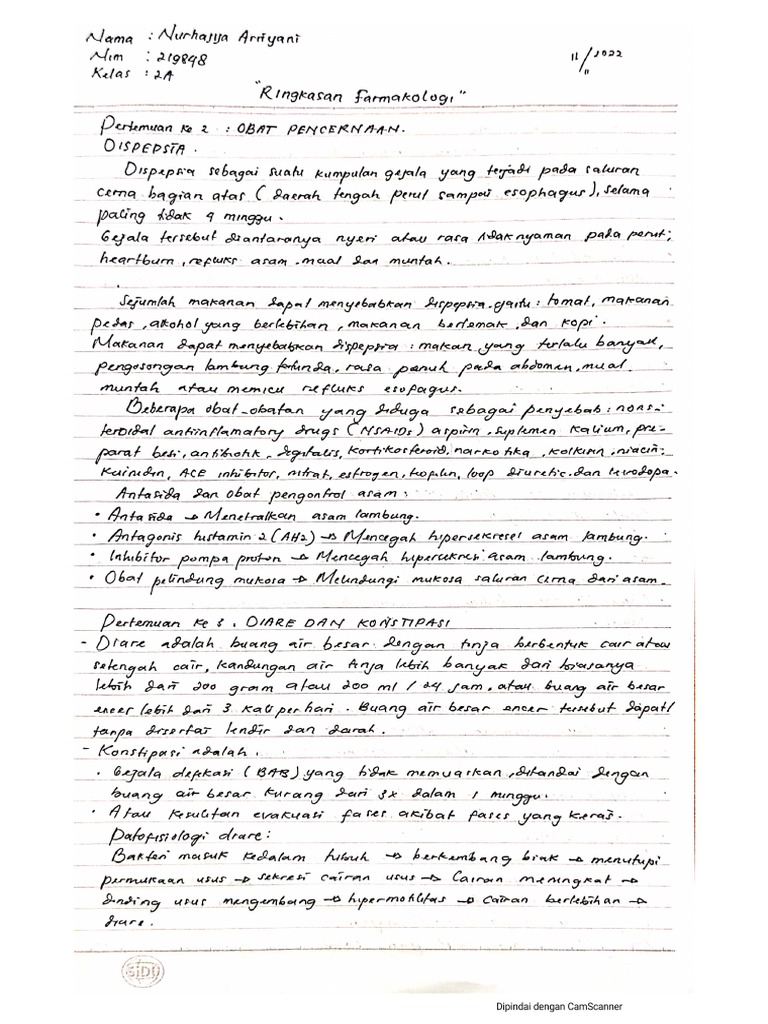 Nama : Nurhasya Arriyani
Nim : 219848
Kelas : 2A
11/11 2022
"Ringkasan Farmakologi"
Pertemuan ke 2 : OBAT PENCERNAAN.
DISPEPSIA.
Dispepsia sebagai suatu kumpulan gejala yang terjadi pada saluran
cerna bagian atas (daerah tengah perut sampai esophagus), selama
paling tidak 4 minggu.
Gejala tersebut diantaranya nyeri atau rasa tidaknyaman pada perut;
heartburn, refluks asam, mual dan muntah.
Sejumlah makanan dapat menyebabkan dispepsia. yaitu : tomat, makanan
pedas, alkohol yang berlebihan, makanan berlemak, dan kopi.
Makanan dapat menyebabkan dispepsia : makan yang terlalu banyak,
pengosongan lambung tertunda, rasa penuh pada abdomen, mual
muntah atau memicu refluks esofagus.
Beberapa obat-obatan yang diduga sebagai penyebab : nons-
teroidal antiinflamatory drugs (NSAIDs) aspirin, suplemen kalium, pre-
parat besi, antibiotik, digitalis, kortikosteroid, narkotika, kolkisin, niacin,
kuinidin, ACE inhibitor, nitrat, estrogen, teofilin, loop diuretic. dan levodopa.
Antasida dan obat pengontrol asam :
• Antasida → Menetralkan asam lambung.
• Antagonis histamin 2 (AH2) → Mencegah hipersekresel asam lambung.
• Inhibitor pompa proton → Mencegah hipersekresi asam lambung.
• Obat pelindung mukosa → Melindungi mukosa saluran cerna dari asam.
Pertemuan ke 3. DIARE DAN KONSTIPASI
- Diare adalah buang air besar dengan tinja berbentuk cair atau
setengah cair, kandungan air tinja lebih banyak dari biasanya
lebih dari 200 gram atau 200 ml / 24 jam, atau buang air besar
encer lebih dari 3 kali perhari. Buang air besar encer tersebut dapat/
tanpa disertai lendir dan darah.
- Konstipasi adalah.
• Gejala defekasi (BAB) yang tidak memuaskan, ditandai dengan
buang air besar kurang dari 3x dalam 1 minggu.
• Atau kesulitan evakuasi fases akibat fases yang keras.
Patofisiologi diare :
Bakteri masuk kedalam tubuh → berkembang biak → menutupi
permukaan usus → sekresi cairan usus → Cairan meningkat →
dinding usus mengembang → hipermotilitas → cairan berlebihan →
diare.
SIDU
Dipindai dengan CamScanner